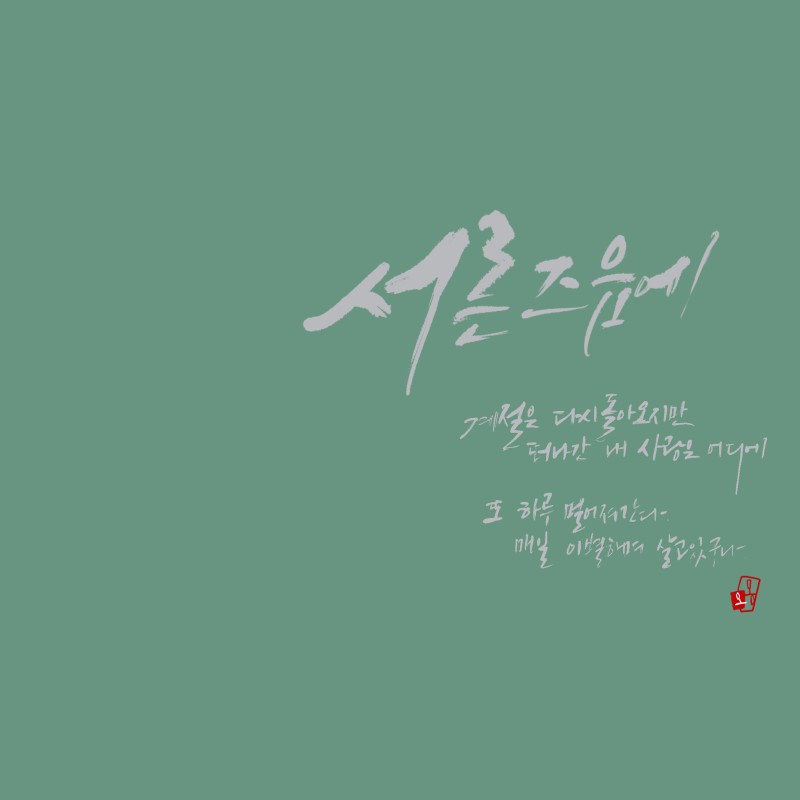 서른 즈음에
계절은 다시 돌아오지만
떠나간 내 사랑은 어디에
또 하루 멀어져간다
매일 이별하며 살고있구나